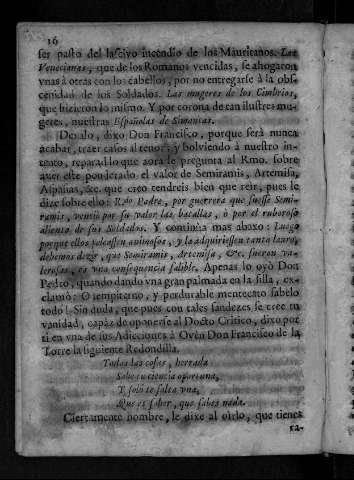 16
ser pasto del lascivo incendio de los Mauritanos. Las
Venecianas, que de los Romanos vencidas, se ahogaron
vnas à otras con los cabellos, por no entregarse à la obs-
cenidad de los Soldados. Las mugeres de los Cimbrios,
que hizieron lo mismo. Y por corona de tan ilustres mu-
geres, nuestras Españolas de
Dexalo, dixo Don Francisco, porque será nunca
acabar, traer casos al tenor; y bolviendo à nuestro in-
tento, reparad lo que aora se pregunta al Rmo. sobre
aver este ponderado el valor de Semiramis, Artemisa,
Aspasias, &c. que creo tendreis bien que reir, pues le
dize sobre ello: R.do Padre, por guerrera que fuesse Semi-
ramis, venciò por su valor las batallas, ò por el ruboroso
aliento de sus Soldados. Y continùa mas abaxo: Luego
porque ellos peleassen animosos, y la adquiriessen tanto lauro,
debemos dezir, que Semiramis, Artemisa, &c. fueron va-
lerosas, es vna consequencia falible. Apenas lo oyò Don
Pedro, quando dando vna gran palmada en la silla, ex-
clamò: O sempiterno, y perdurable mentecato sabelo
todo! Sin duda, que pues con tales sandezes se cree tu
vanidad, capàz de oponerse al Docto Critico, dixo por
ti en vna de sus Adicciones à Ovèn Don Francisco de la
Torre la siguiente Redondilla.
Todas las cosas,
Sabe tu ciencia oportuna,
Y solo te falta vna,
Que es saber, que sabes nada.
Ciertamente hombre, le dixe al oìrlo, que tienes